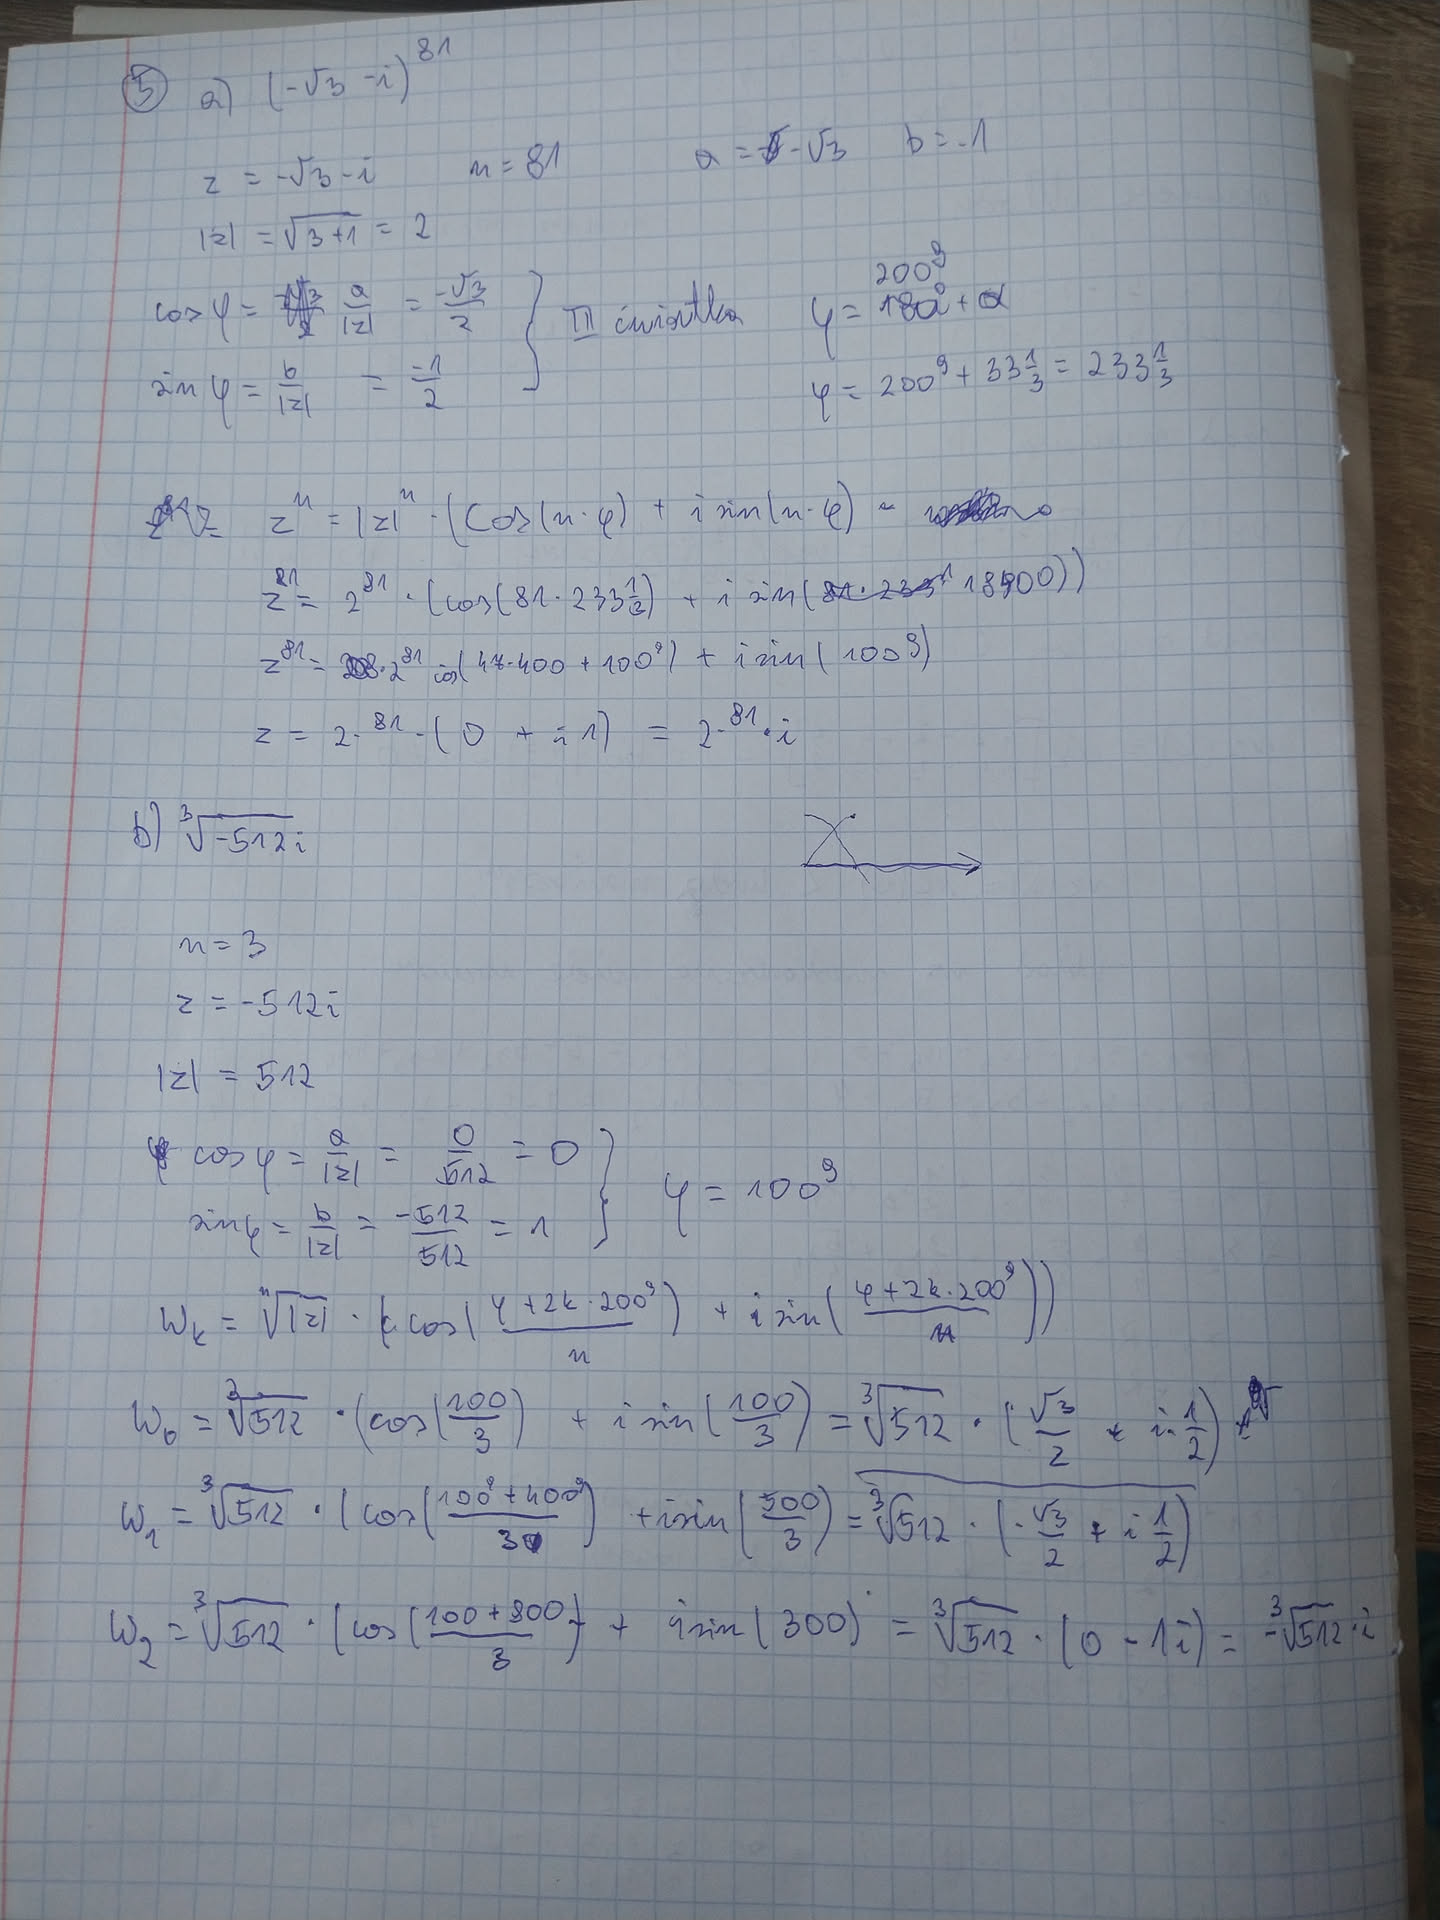 5 a) (-√3 - i)^81
z = -√3 - i    n = 81    a = -√3    b = -1
|z| = √(3+1) = 2
cos φ = a/|z| = -√3/2
sin φ = b/|z| = -1/2
III ćwiartka
φ = 200^g + α
φ = 200^g + 33 1/3 = 233 1/3
z^n = |z|^n · (cos(n·φ) + i sin(n·φ)
z^81 = 2^81 · (cos(81·233 1/3) + i sin(18900))
z^81 = 2^81 cos(47·400 + 100^g) + i sin(100^g)
z = 2·^81 · (0 + i 1) = 2·^81 · i
b) ∛(-512i)
n = 3
z = -512i
|z| = 512
cos φ = a/|z| = 0/512 = 0
sin φ = b/|z| = -512/512 = 1
φ = 100^g
w_k = ⁿ√|z| · (cos((φ+2k·200^g)/n) + i sin((φ+2k·200^g)/n))
w_0 = ∛512 · (cos(100/3) + i sin(100/3) = ∛512 · (√3/2 + i·1/2)
w_1 = ∛512 · (cos((100^g+400^g)/3) + i sin(500/3) = ∛512 · (-√3/2 + i 1/2)
w_2 = ∛512 · (cos((100+800)/3) + i sin(300) = ∛512 · (0 - 1i) = -∛512 · i